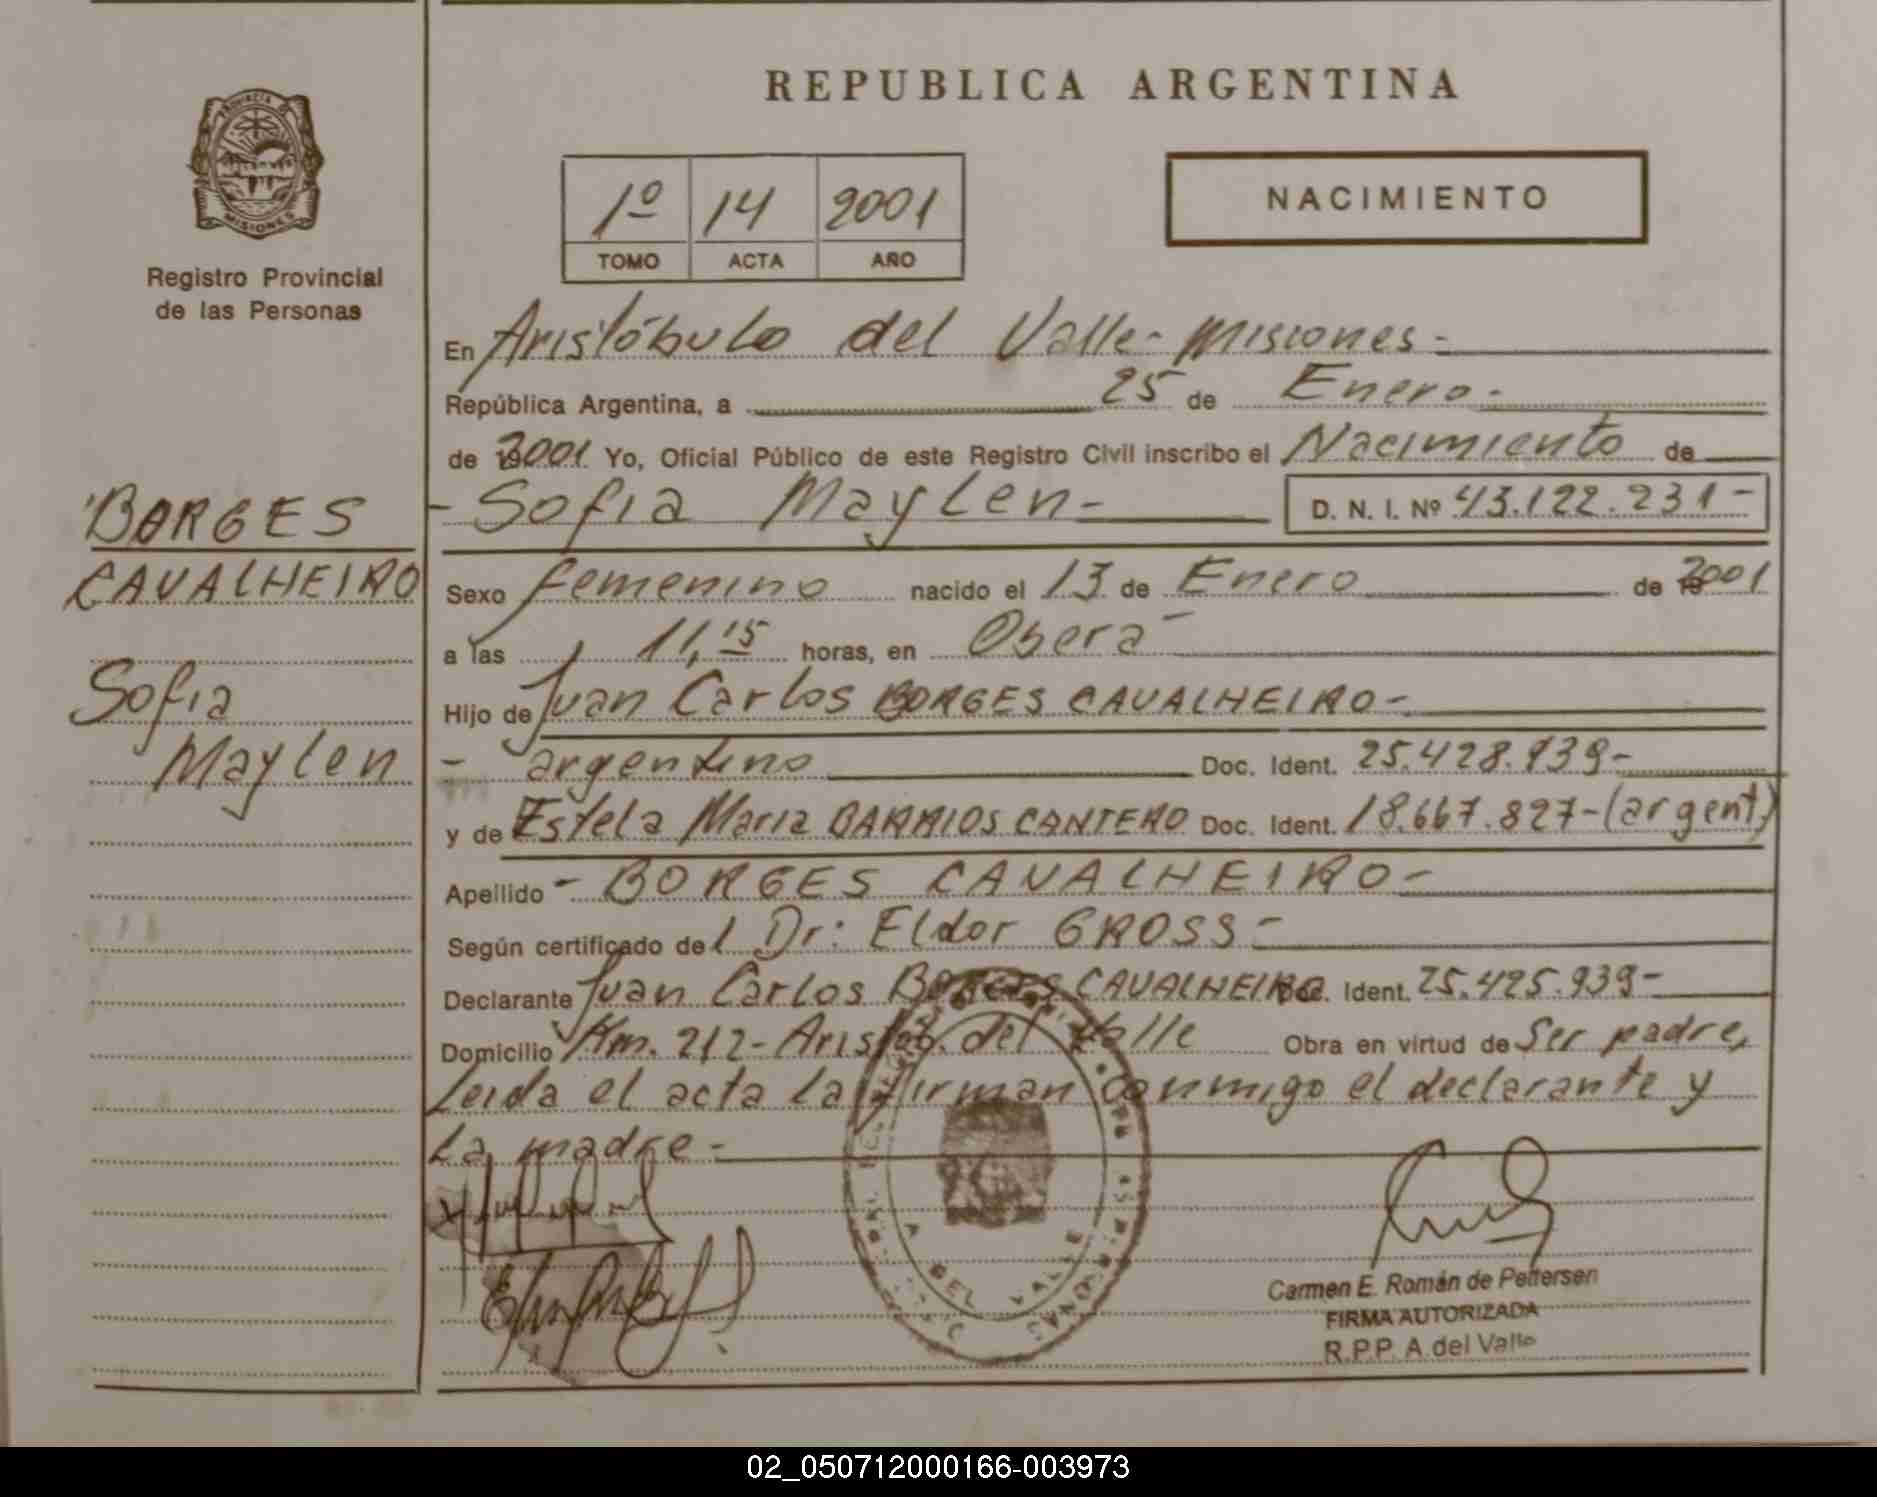 REPUBLICA ARGENTINA
PROVINCIA DE
MISIONES
Registro Provincial
de las Personas
1º 14 2001
TOMO ACTA AÑO
NACIMIENTO
En Aristóbulo del Valle - Misiones -
República Argentina, a 25 de Enero -
de 2001 Yo, Oficial Público de este Registro Civil inscribo el Nacimiento de
- Sofia Maylen - D. N. I. Nº 43.122.231 -
BORGES
CAVALHEIRO
Sofia
Maylen
Sexo femenino nacido el 13 de Enero de 2001
a las 11,15 horas, en Oberá
Hijo de Juan Carlos BORGES CAVALHEIRO -
- argentino Doc. Ident. 25.428.939 -
y de Estela Maria BARRIOS CANTERO Doc. Ident. 18.667.827 - (argent)
Apellido - BORGES CAVALHEIRO -
Según certificado del Dr: Eldor GROSS -
Declarante Juan Carlos BORGES CAVALHEIRO Doc. Ident. 25.425.939 -
Domicilio Km. 212 - Aristób. del Valle Obra en virtud de Ser padre,
Leida el acta la firman conmigo el declarante y
La madre -
DEL VALLE
Carmen E. Román de Pettersen
FIRMA AUTORIZADA
R.P.P. A. del Valle
02_050712000166-003973